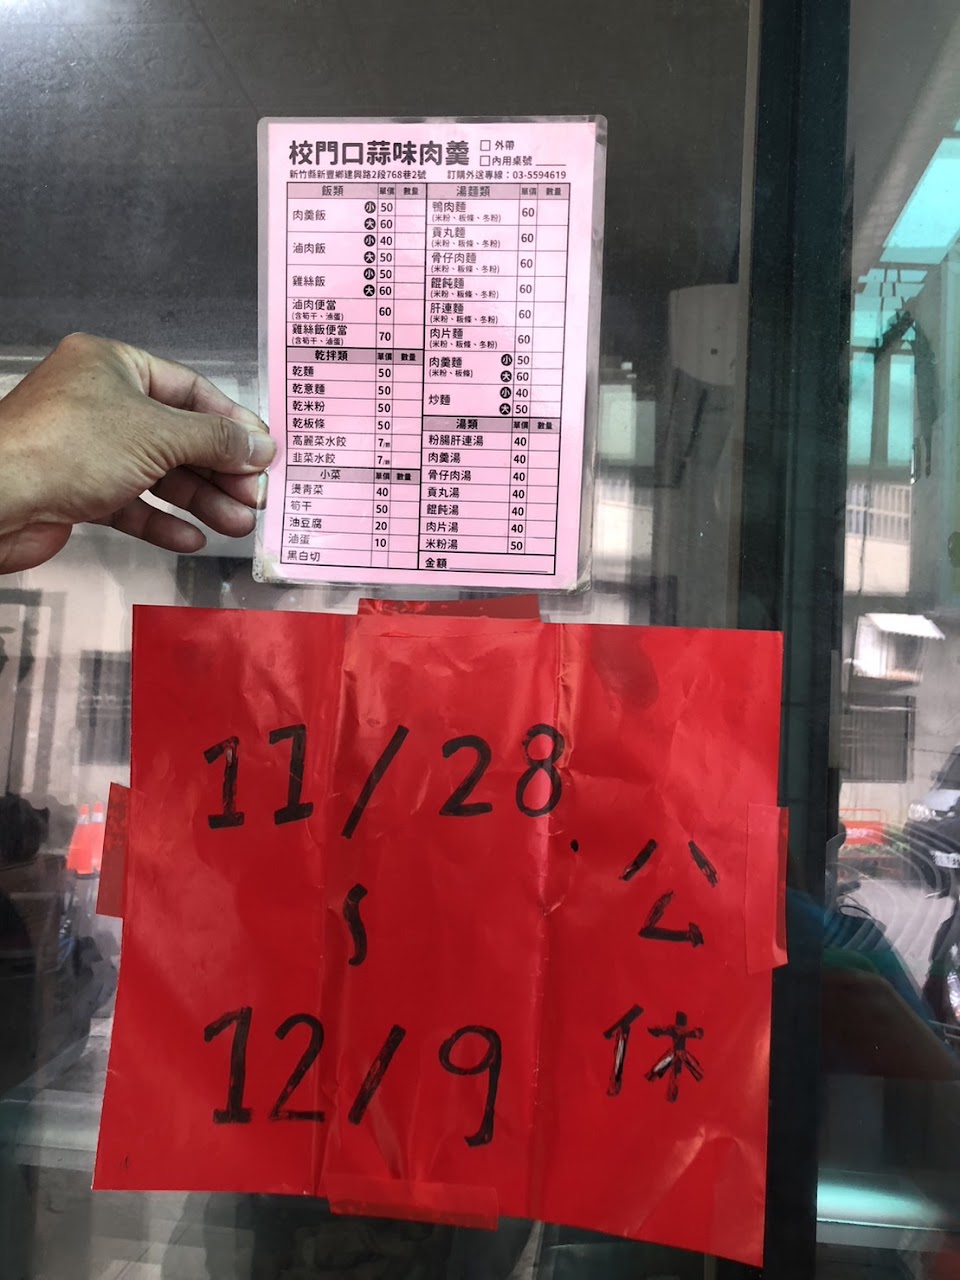 校門口蒜味肉羹
□外帶
□內用桌號
新竹縣新豐鄉建興路2段768巷2號 訂購外送專線：03-5594619
飯類 單價 數量
肉羹飯 小 50
大 60
滷肉飯 小 40
大 50
雞絲飯 小 50
大 60
滷肉便當 60
(含筍干、滷蛋)
雞絲飯便當 70
(含筍干、滷蛋)
乾拌類 單價 數量
乾麵 50
乾意麵 50
乾米粉 50
乾板條 50
高麗菜水餃 7/顆
韭菜水餃 7/顆
小菜 單價 數量
燙青菜 40
筍干 50
油豆腐 20
滷蛋 10
黑白切
湯麵類 單價 數量
鴨肉麵 60
(米粉、粄條、冬粉)
貢丸麵 60
(米粉、粄條、冬粉)
骨仔肉麵 60
(米粉、粄條、冬粉)
餛飩麵 60
(米粉、粄條、冬粉)
肝連麵 60
(米粉、粄條、冬粉)
肉片麵 60
(米粉、粄條、冬粉)
肉羹麵 小 50
(米粉、粄條) 大 60
炒麵 小 40
大 50
湯類 單價 數量
粉腸肝連湯 40
肉羹湯 40
骨仔肉湯 40
貢丸湯 40
餛飩湯 40
肉片湯 40
米粉湯 50
金額
11/28
~
12/9
公休